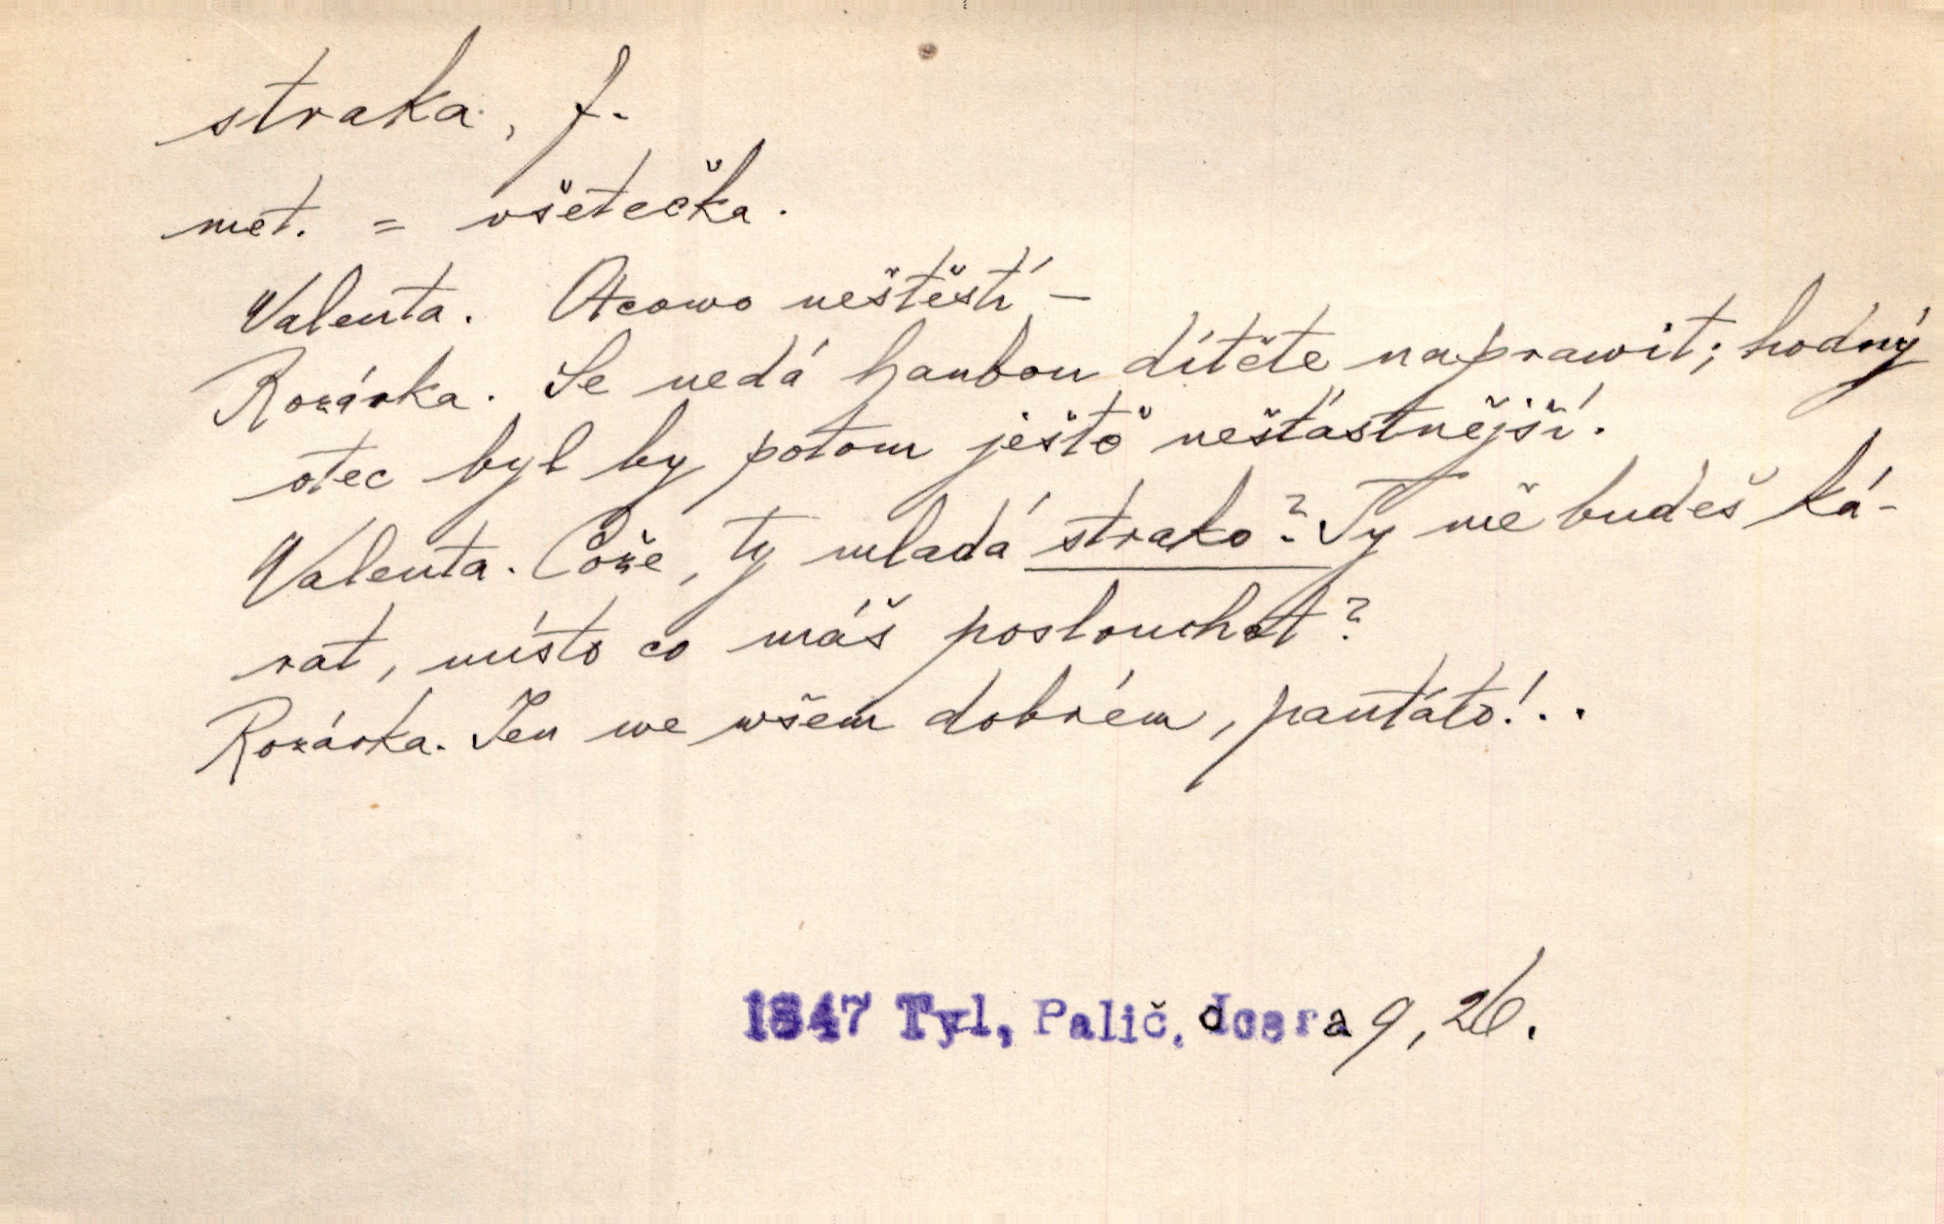 straka, f.
met. = všetečka.
Valenta. Otcowo neštěstí –
Rozárka. Se nedá hanbou dítěte naprawit; hodný
otec byl by potom ještě nešťastnější.
Valenta. Cože, ty mladá strako? Ty mě budeš ká-
rat, místo co máš poslouchat?
Rozárka. Jen we wšem dobrém, pantáto!..
1847 Tyl, Palič. dcera 9, 26.